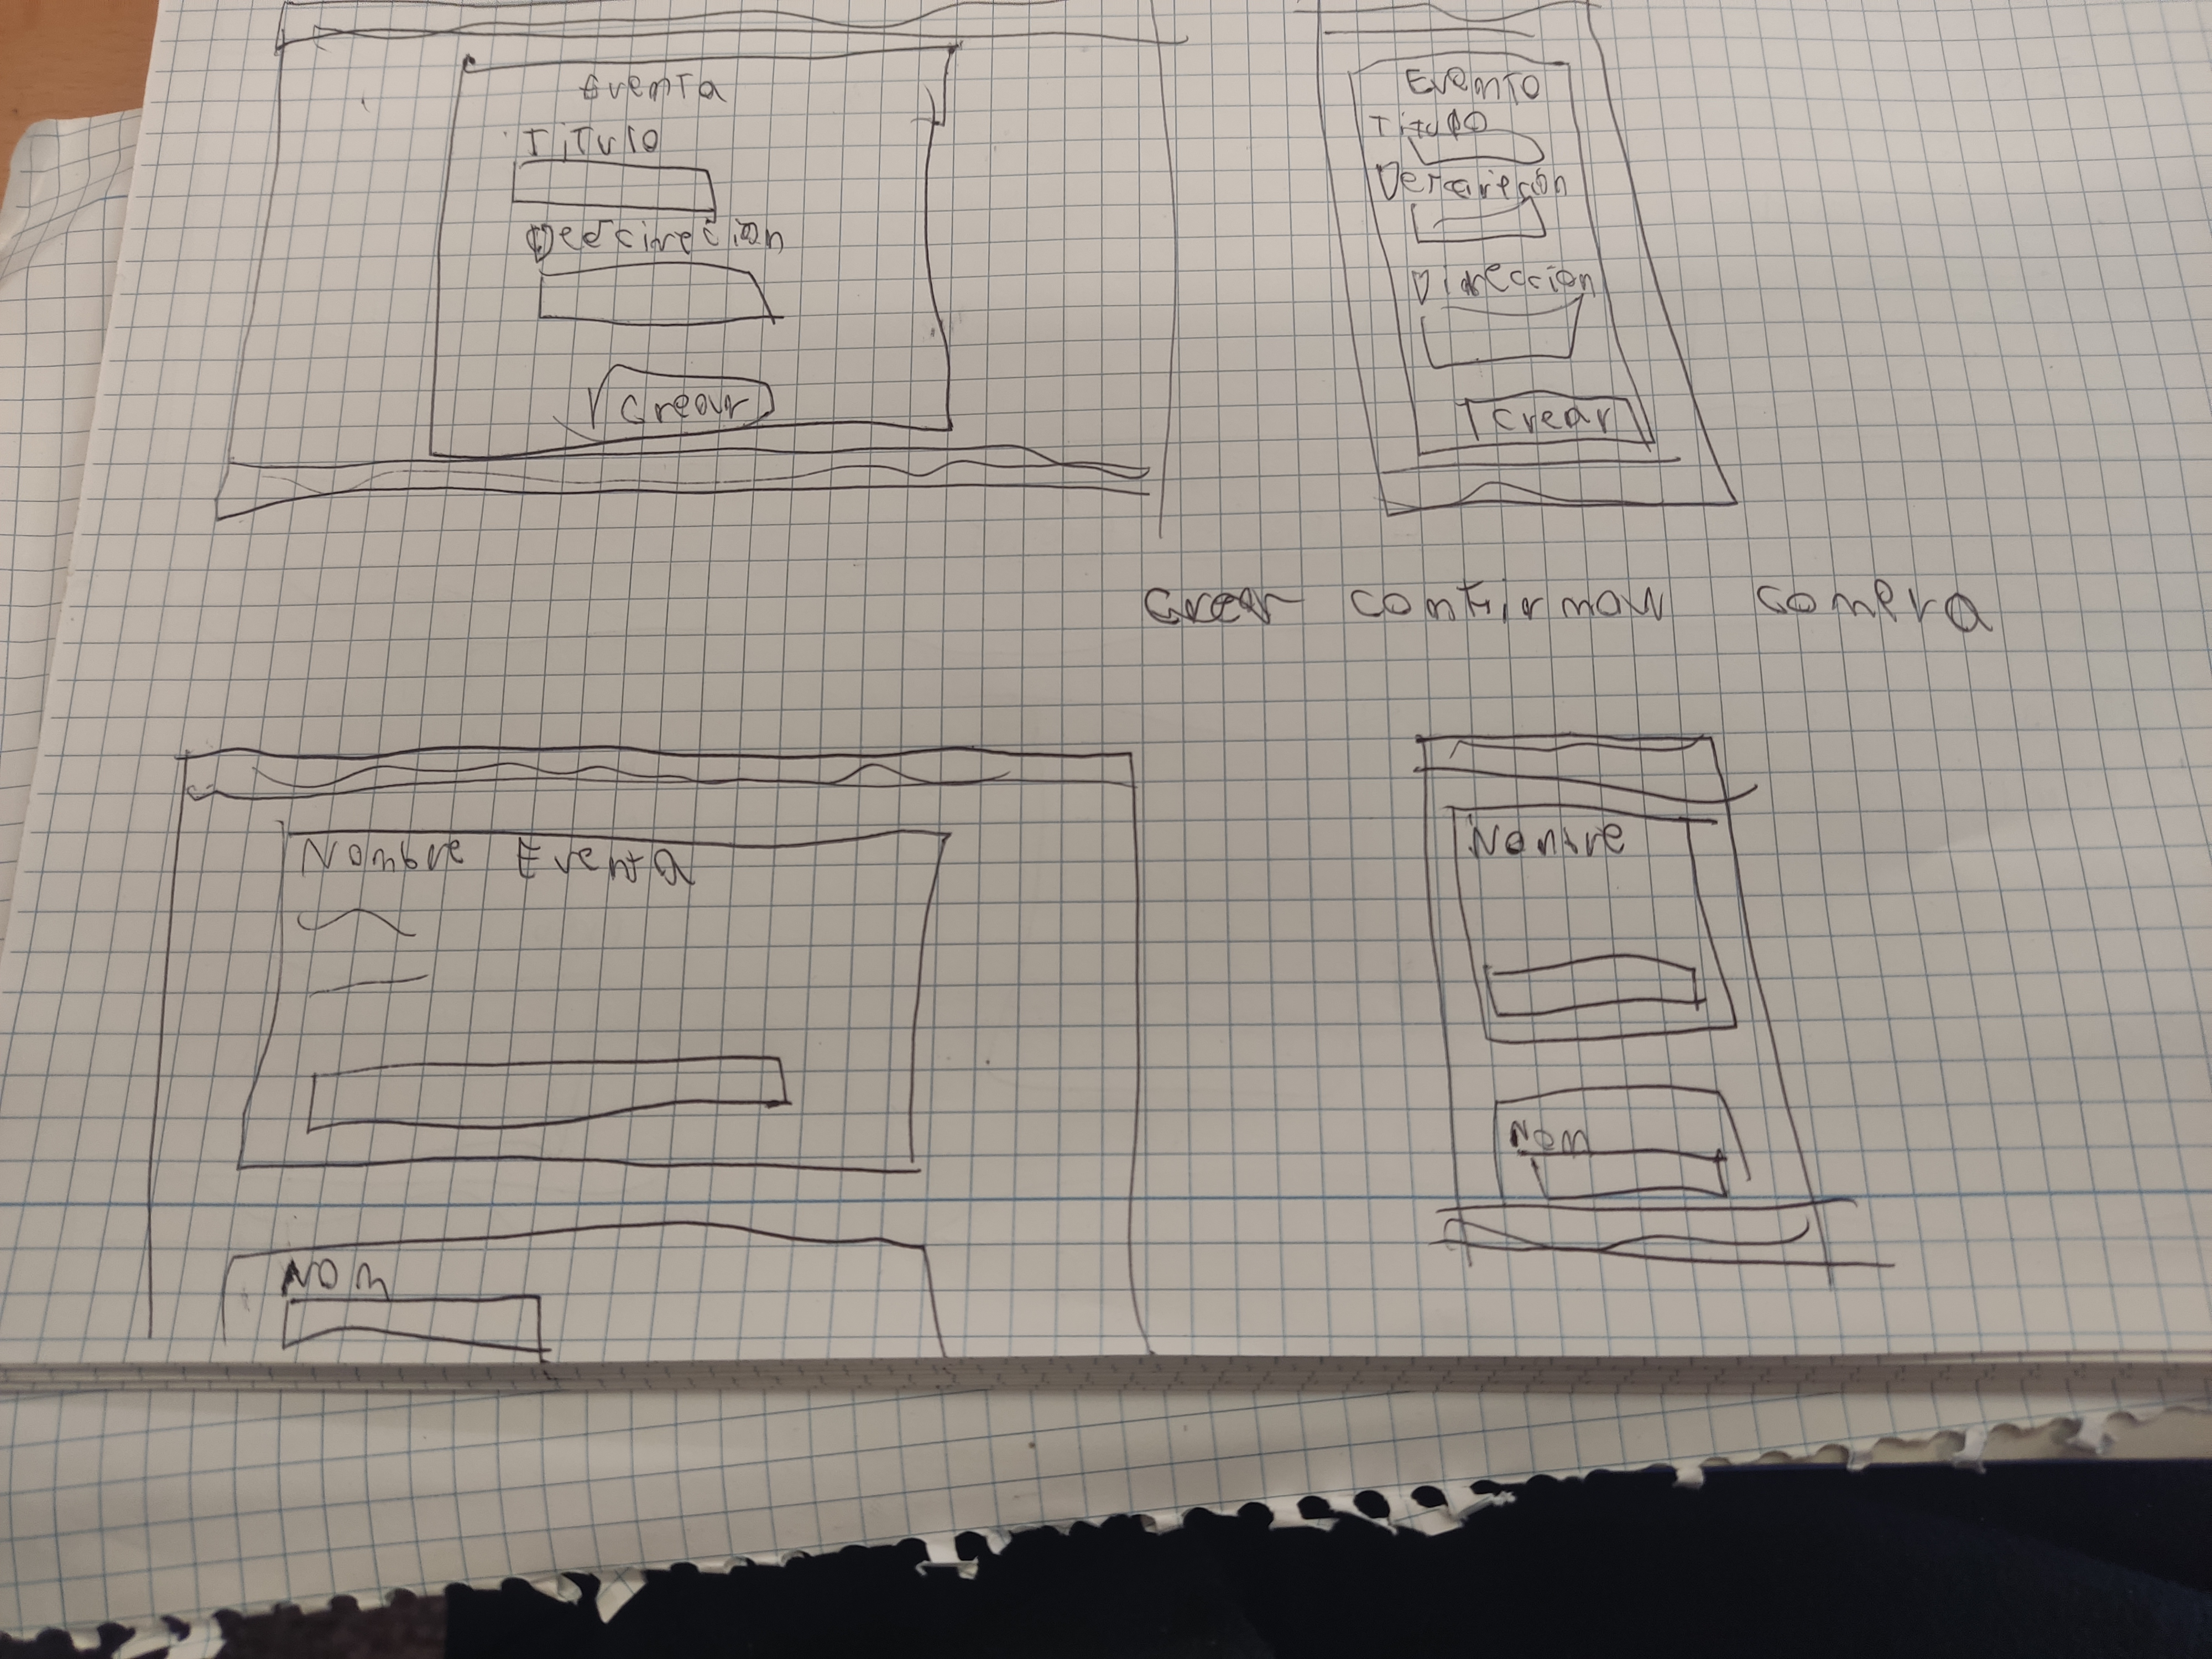 Evento
Titulo
Crear
Evento
Titulo
Descripción
Dirección
Crear
Crear confirmar compra
Nombre Evento
Nom
Nombre
Nom